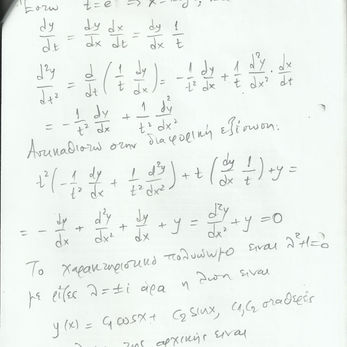 Έστω t = e
dy/dt = dy/dx dx/dt = dy/dx 1/t
d²y/dt² = d/dt (1/t dy/dx) = -1/t² dy/dx + 1/t d²y/dx² · dx/dt
= -1/t² dy/dx + 1/t² d²y/dx²
στην διαφορική εξίσωση:
t² (-1/t² dy/dx + 1/t² d²y/dx²) + t (dy/dx 1/t) + y =
= -dy/dx + d²y/dx² + dy/dx + y = d²y/dx² + y = 0
Το χαρακτηριστικό πολυώνυμο είναι λ²+1=0
με ρίζες λ=±i άρα η λύση είναι
y(x) = c₁cosx + c₂ sinx, c₁,c₂ σταθερές
της αρχικής είναι